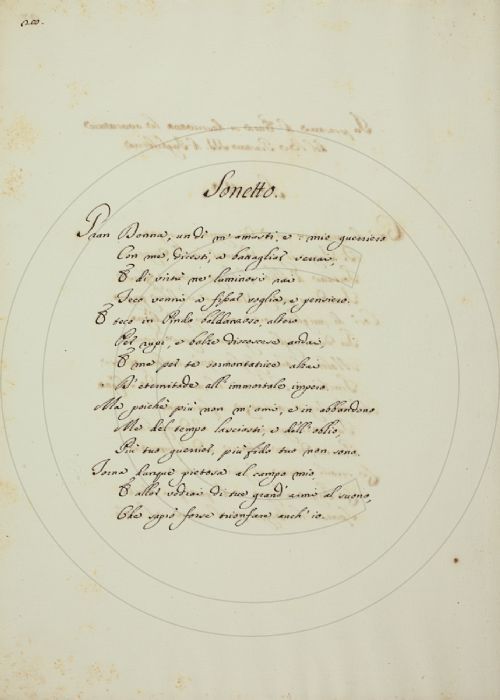 200.
Sonetto.
Gran Donna, un dì m'amasti, e: mio guerriero
Con me, dicesti, a battaglia verrai,
E di virtù ne' luminosi rai
Teco venni a fissar voglia, e pensiero.
E teco in Pindo baldanzoso, altero
Per rupi, e balze discoscese andai
E me per te sormontatrice alzai
D'eternitade all'immortale impero.
Ma poichè più non m'ami, e in abbandono
Me del tempo lasciasti, e dell'oblio,
Più tuo guerrier, più fido tuo non sono.
Torna dunque pietosa al campo mio
E allor vedrai di tue grand'armi al suono,
Che saprò forse trionfare anch'io.